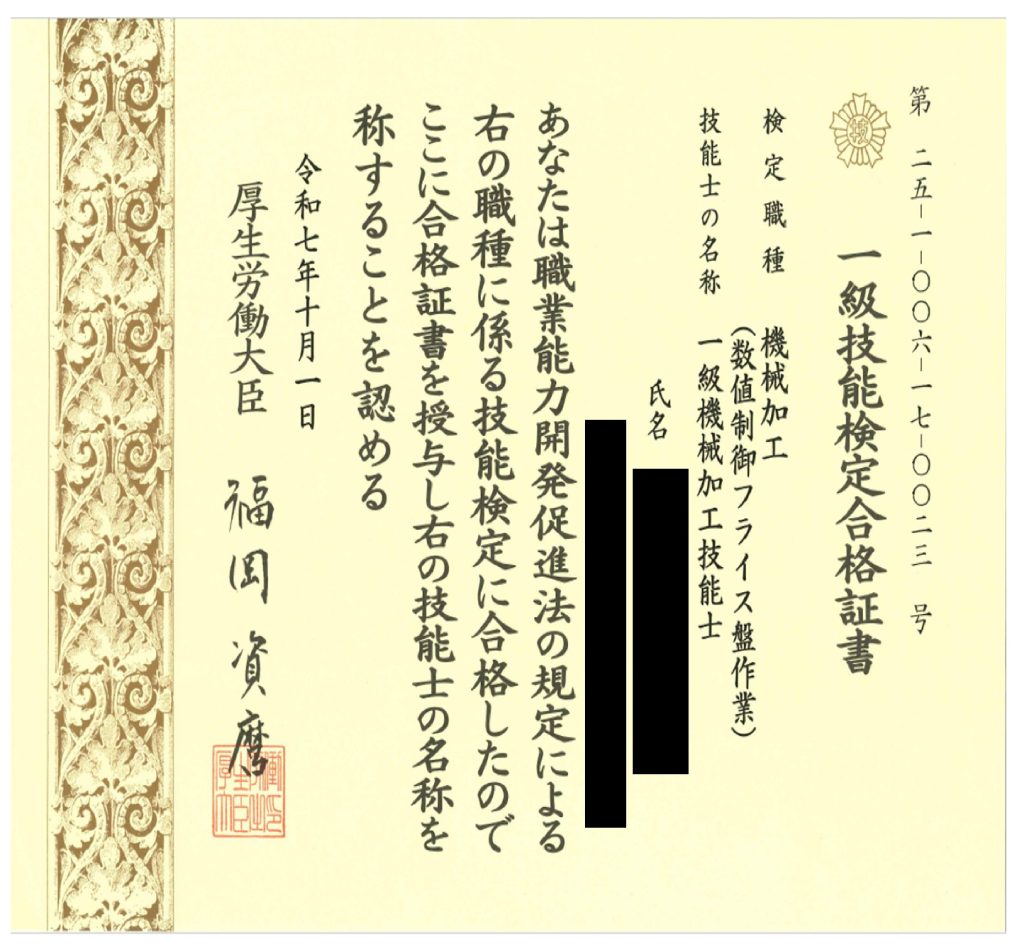 第 二五-一-〇〇六-一七-〇〇二三 号
一級技能検定合格証書
検定職種 機械加工
(数値制御フライス盤作業)
技能士の名称 一級機械加工技能士
氏名
あなたは職業能力開発促進法の規定による
右の職種に係る技能検定に合格したので
ここに合格証書を授与し右の技能士の名称を
称することを認める
令和七年十月一日
厚生労働大臣 福岡資麿